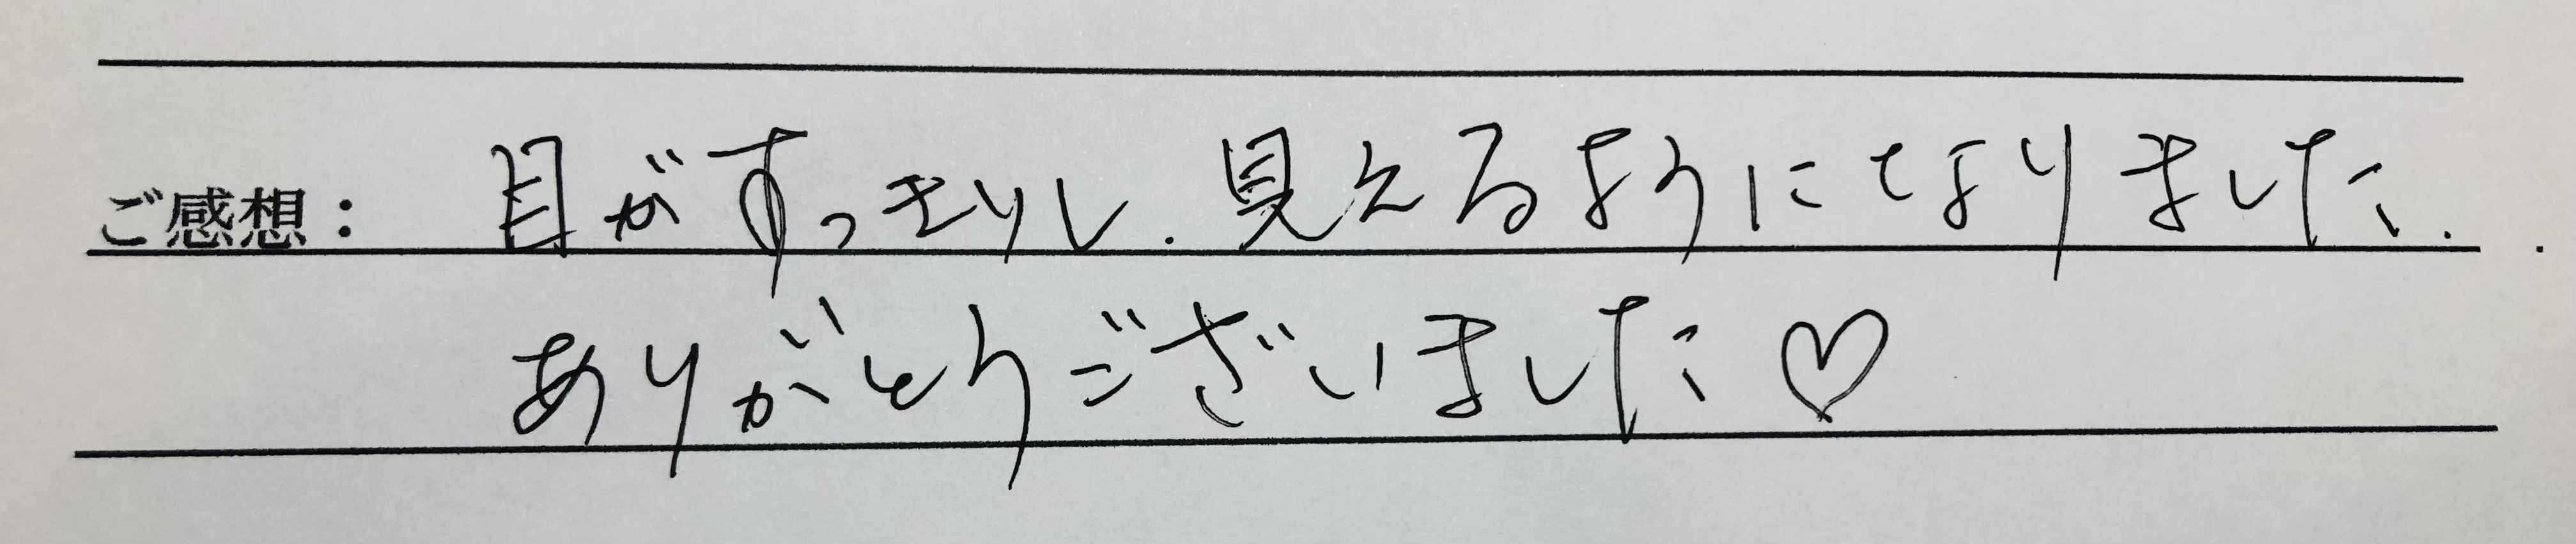 ご感想： 目がすっきりし．見えるようになりました．
ありがとうございました♡